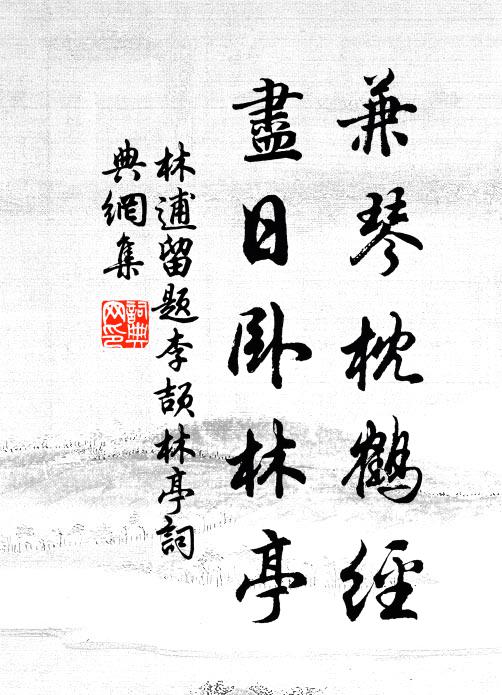 兼琴枕鶴經
盡日臥林亭
林逋留題李頡林亭詞
典網集
詞典
网印